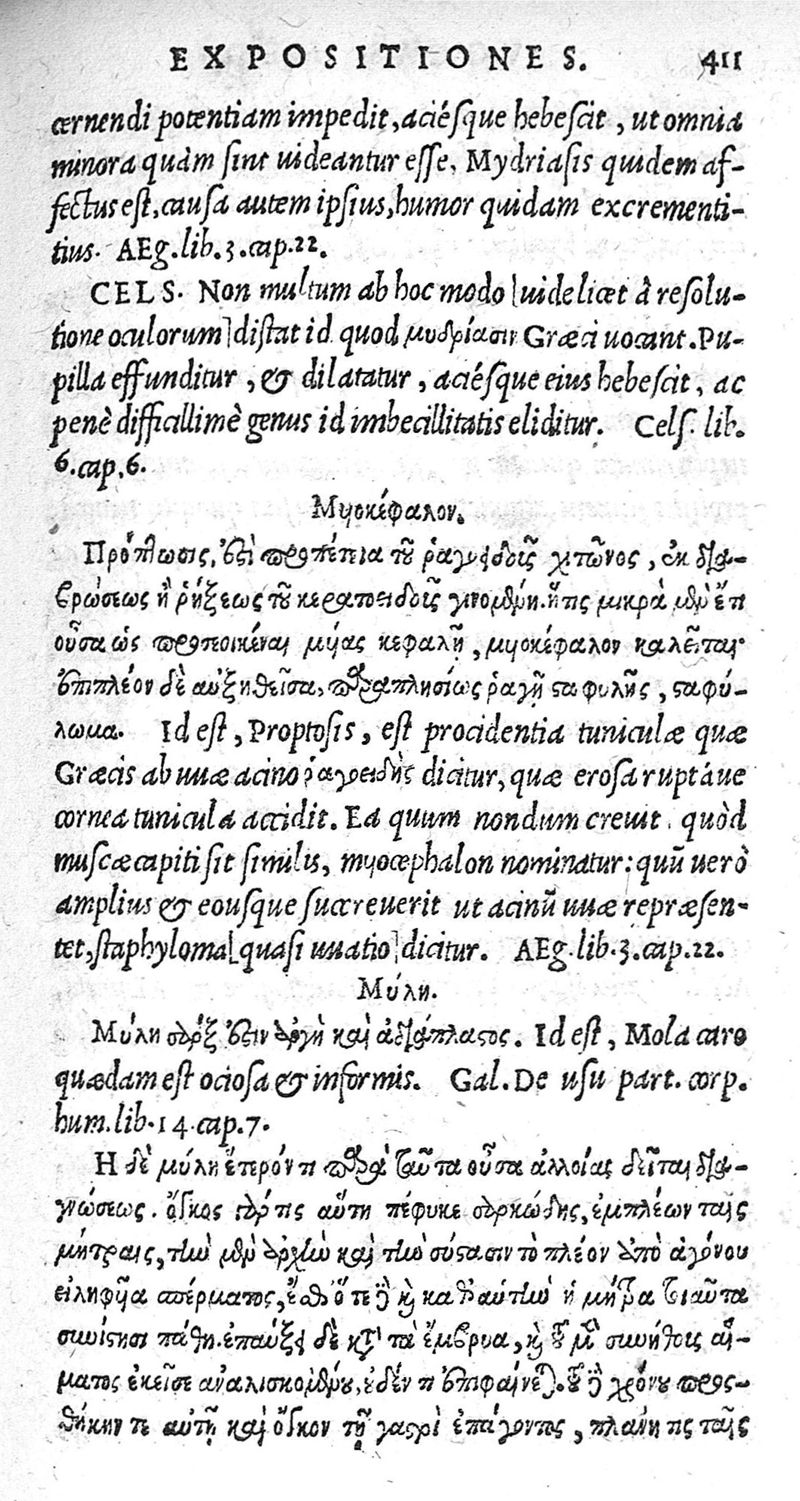 EXPOSITIONES. 411
cernendi potentiam impedit, aciésque hebescit, ut omnia
minora quàm sint uideantur esse. Mydriasis quidem af-
fectus est, causa autem ipsius, humor quidam excrementi-
tius. AEg. lib. 3. cap. 22.
CELS. Non multum ab hoc modo [uidelicet à resolu-
tione oculorum] distat id quod μυδρίασιν Græci uocant. Pu-
pilla effunditur, & dilatatur, aciésque eius hebescit, ac
penè difficillimè genus id imbecillitatis eliditur. Cels. lib.
6. cap. 6.
Μυοκέφαλον.
Πρόπτωσις, ἐστὶ προπέτεια τοῦ ῥαγοειδοῦς χιτῶνος, ἐκ δια-
βρώσεως ἢ ῥήξεως τοῦ κερατοειδοῦς γινομένη. ἥτις μικρὰ μὲν ἔτι
οὖσα ὡς προσεοικέναι μυίας κεφαλῇ, μυοκέφαλον καλεῖται·
ἐπιπλέον δὲ αὐξηθεῖσα, παραπλησίως ῥαγῇ σταφυλῆς, σταφύ-
λωμα. Id est, Proptosis, est procidentia tuniculæ quæ
Græcis ab uuæ acino ῥαγοειδὴς dicitur, quæ erosa ruptáue
cornea tunicula accidit. Ea quum nondum creuit, quòd
muscæ capiti sit similis, myocephalon nominatur: quū uerò
amplius & eousque succreuerit ut acinū uuæ repræsen-
tet, staphyloma [quasi uuatio] dicitur. AEg. lib. 3. cap. 22.
Μύλη.
Μύλη σάρξ ἐστιν ἀργὴ καὶ ἀδιάπλαστος. Id est, Mola caro
quædam est ociosa & informis. Gal. De usu part. corp.
hum. lib. 14. cap. 7.
Η δὲ μύλη ἕτερόν τι παρὰ ταῦτα οὖσα ἀλλοίας δεῖται δια-
γνώσεως. ὄγκος γάρ τις αὕτη πέφυκε σαρκώδης, ἐμπλέων ταῖς
μήτραις, τὴν μὲν ἀρχὴν καὶ τὴν σύστασιν τὸ πλέον ἀπὸ ἀγόνου
εἰληφυῖα σπέρματος, ἔσθ' ὅτε δὲ καὶ καθ' αὑτὴν ἡ μήτρα τοιαῦτα
συνίστησι πάθη. ἐπαύξει δὲ κατὰ τὰ ἔμβρυα, καὶ τοῦ μὲν συνήθους αἵ-
ματος ἐκεῖσε ἀναλισκομένου, οὐδέν τι ἐπιφαίνεται. τοῦ δὲ χρόνου προσ-
θήκην τε αὐτῇ καὶ ὄγκον τῇ γαστρὶ ἐπάγοντος, πλάνη τις ταῖς